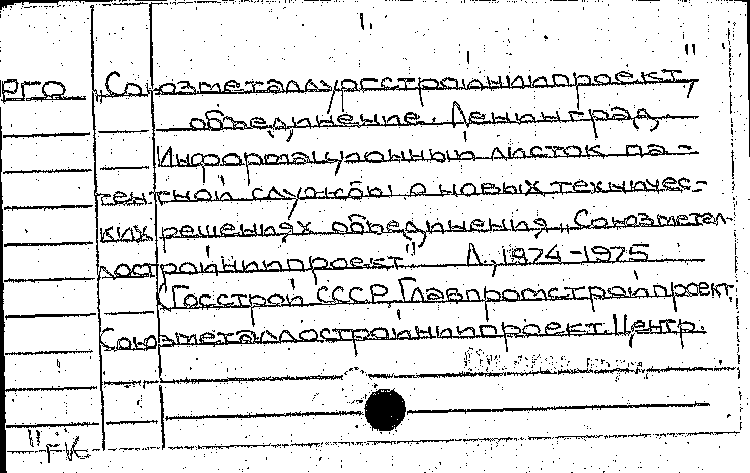 1.
РГО „Союзметаллургстройниипроект",
объединение. Ленинград.
Информационный листок па-
тентной службы о новых техничес-
ких решениях объединения „Союзметал-
лостройниипроект" Л., 1974-1975
(Госстрой СССР. Главпромстройпроект.
Союзметаллостройниипроект. Центр.
"ГК